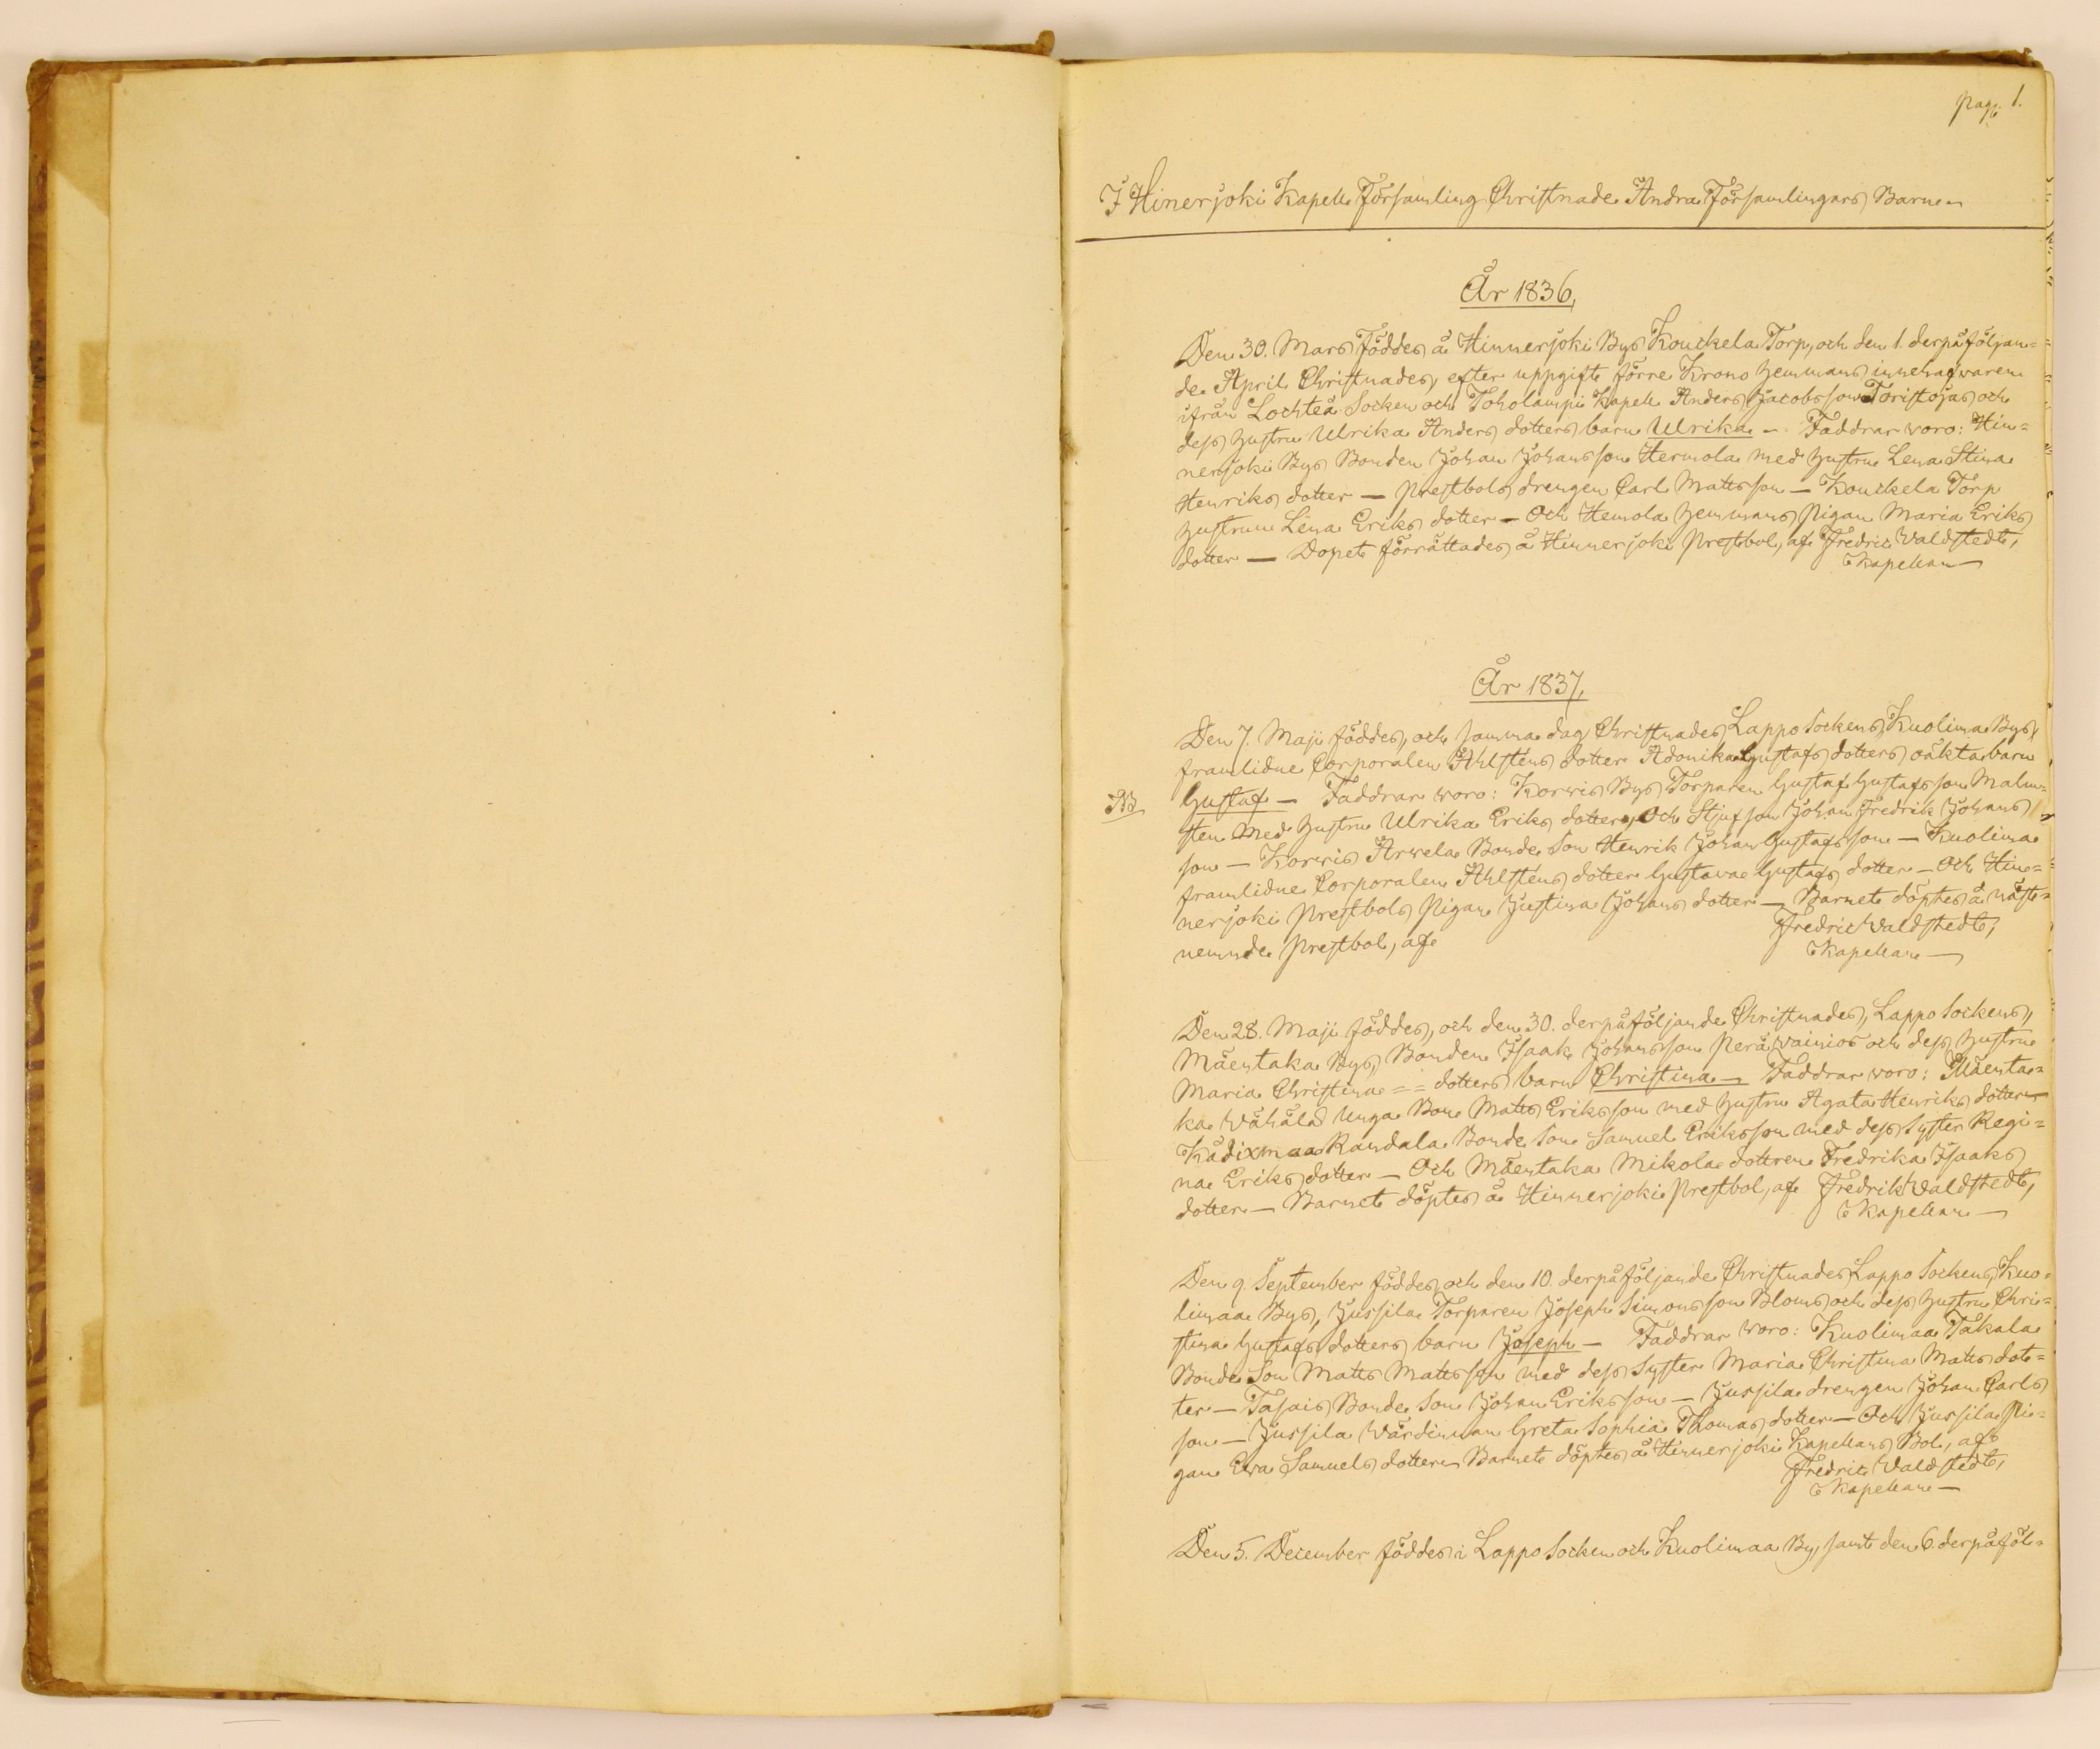 pag. 1.
I Hinerjoki Kapell Församling Christnade Andra Församlingars Barn
År 1836,
Den 30. Mars föddes å Hinnerjoki Bys Kouckela Torp, och den 1. derpåföljan=
de April Christnades, efter uppgift förre Krono hemmans innehafvaren
ifrån Lochteå Socken och Toholampi Kapell Anders Jacobsson Toristojas och
dess hustru Ulrika Anders dotters barn Ulrika — Faddrar voro: Hin=
nerjoki Bys Bonden Johan Johansson Hermola med hustru Lena Stina
Henriks dotter — Prestbols drengen Carl Mattsson — Kouckela Torp
hustrun Lena Eriks dotter — Och Hemola hemmans Pigan Maria Eriks
dotter — Dopet förrättades å Hinnerjoki Prestbol, af Fredric Waldstedt,
Kapellan —
År 1837,
Den 7. Maji föddes, och samma dag Christnades Lappo Sockens, Kuolima Bys,
framlidne Corporalen Ahlstens dotter Adonika Gustafs dotters oäkta barn
NB Gustaf — Faddrar voro: Korvis Bys Torparen Gustaf Gustafsson Malm=
sten med hustru Ulrika Eriks dotter, Och Stjufson Johan Fredrik Johans
son — Korvis Arvela Bonde Son Henrik Johan Gustafsson — Kuolima
framlidne Corporalen Ahlstens dotter Gustava Gustafs dotter — Och Hin=
nerjoki Prestbols Pigan Justina Johans dotter — Barnet döptes å näst=
nemnde Prestbol, af Fredric Waldstedt,
Kapellan —
Den 28. Maji föddes, och den 30. derpåföljande Christnades, Lappo Sockens,
Mäentaka Bys, Bonden Isaak Johansson Perävainios och dess hustru
Maria Christina == dotters barn Christina — Faddrar voro: Mäenta=
ka Vähälä unga Bon Matts Eriksson med hustru Agata Henriks dotter
Kådixmaa Randala Bonde Son Samuel Eriksson med dess Syster Regi=
na Eriks dotter — Och Mäentaka Mikola dottren Fredrika Isaaks
dotter — Barnet döptes å Hinnerjoki Prestbol, af Fredrik Waldstedt,
Kapellan —
Den 9. September föddes, och den 10. derpåföljande Christnades Lappo Sockens, Kuo=
limaa Bys, Jussila Torparen Joseph Simonsson Bloms och dess hustru Chri=
stina Gustafs dotters barn Joseph — Faddrar voro: Kuolimaa Takala
Bonde Son Matts Mattsson med dess Syster Maria Christina Matts dot=
ter — Tasais Bonde Son Johan Eriksson — Jussila drengen Johan Carls
son — Jussila Värdinnan Greta Sophia Thomas dotter — Och Jussila Pi=
gan Eva Samuels dotter Barnet döptes å Hinnerjoki Kapellans Bol, af
Fredric Waldstedt,
Kapellan —
Den 5. December föddes i Lappo Socken och Kuolimaa By, samt den 6. derpåföl=